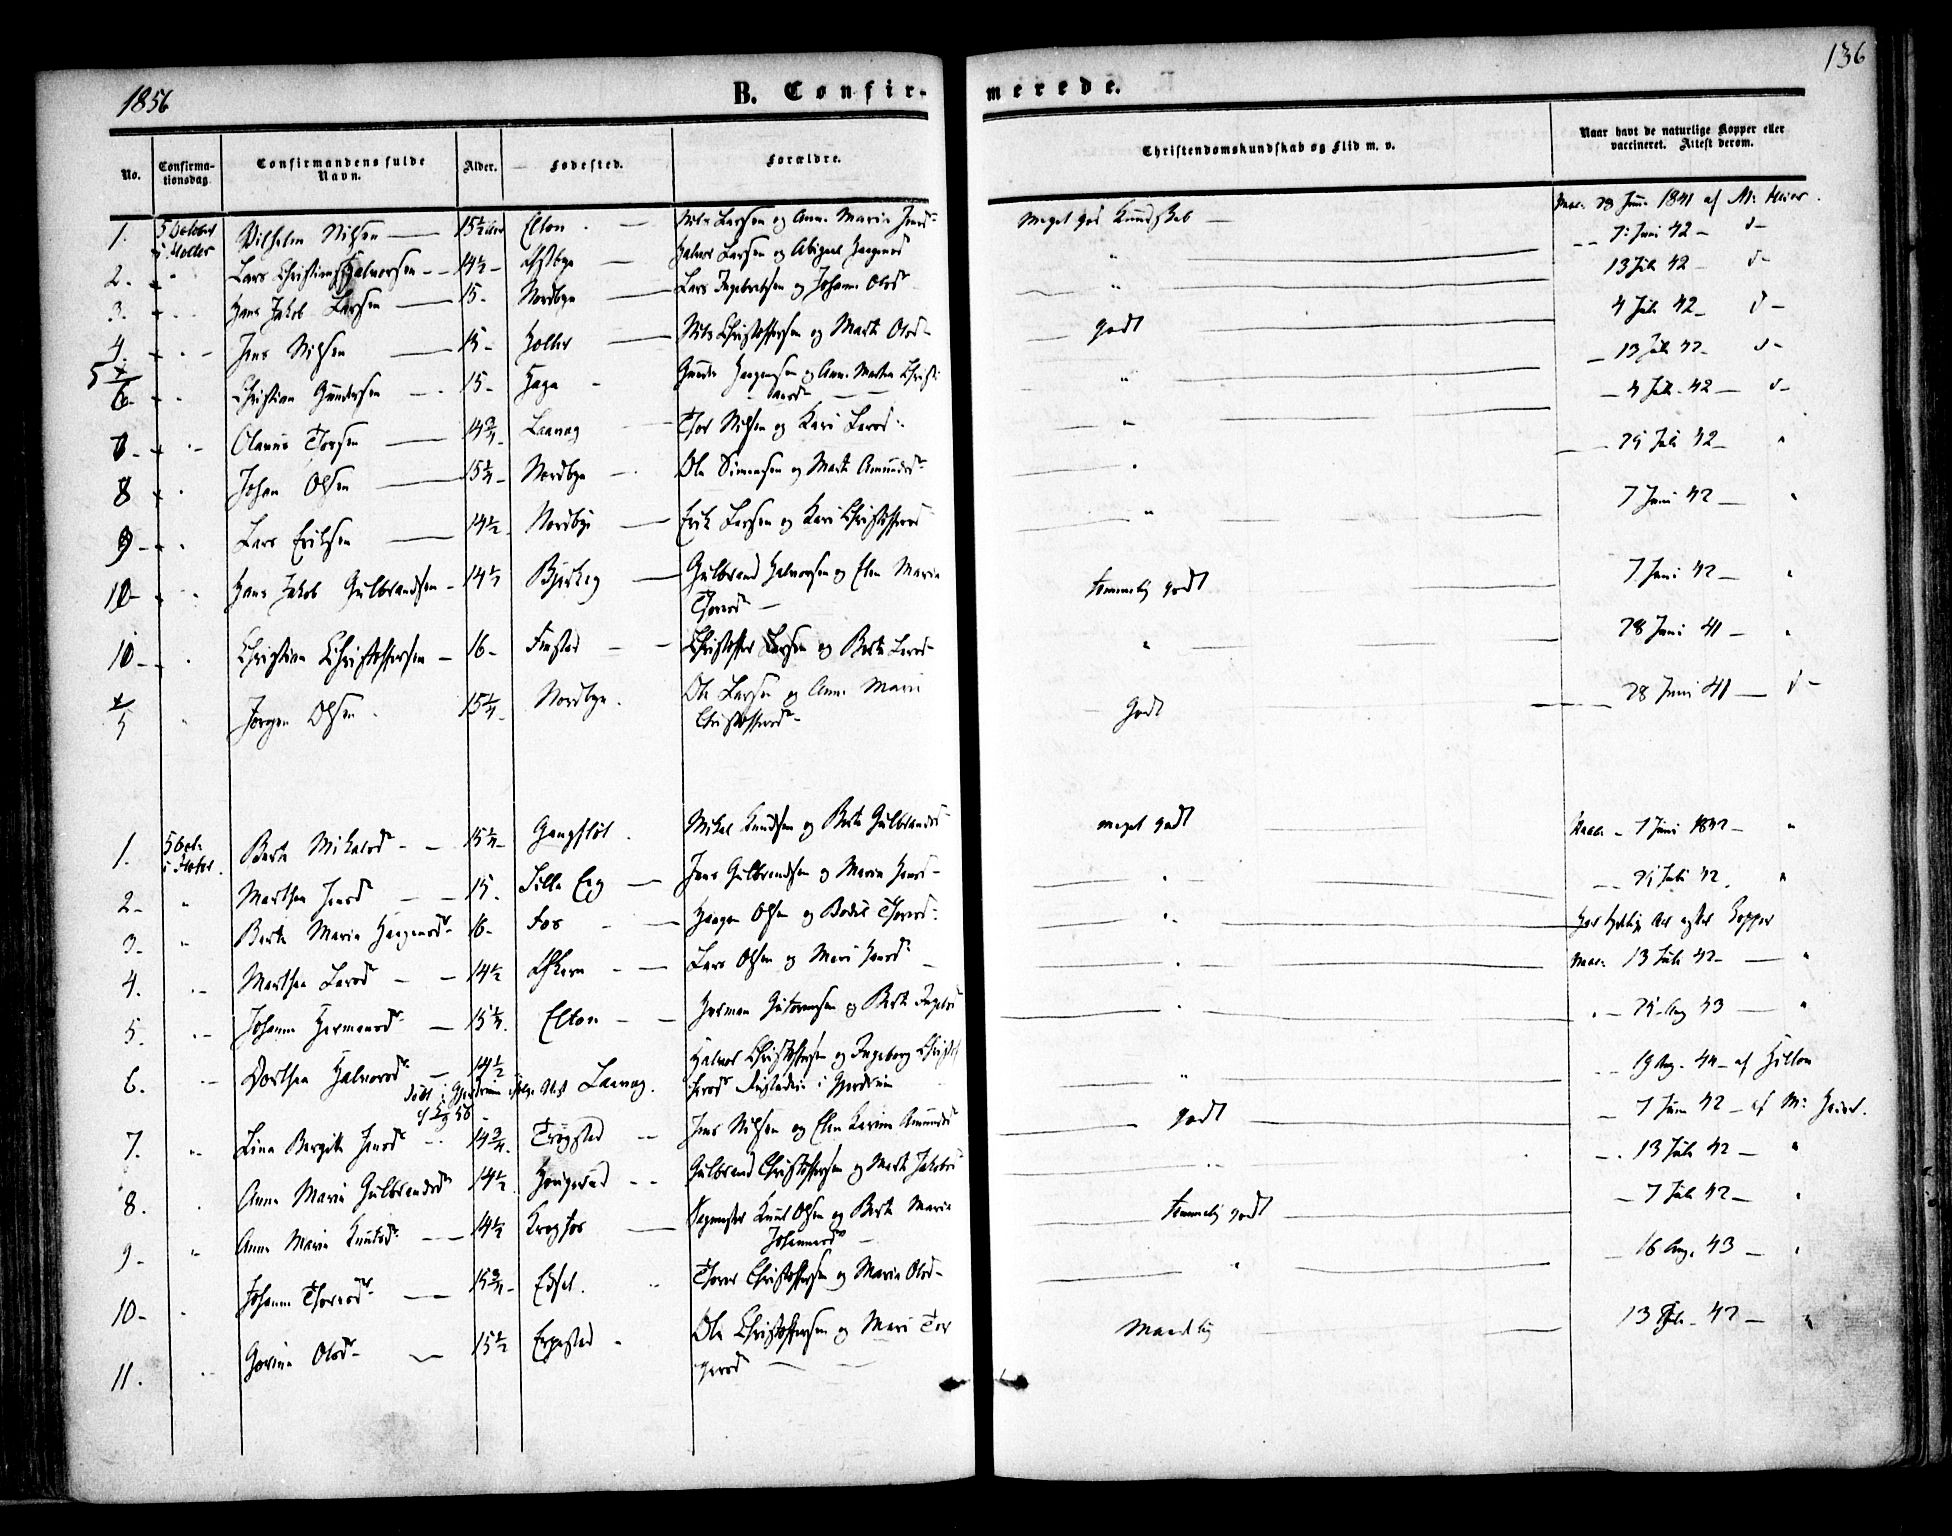 1856
B. Confir-
merede.
136
No.
Confirma-
tionsdag.
Confirmandens fulde
Navn.
Alder.
Fødested.
Forældre.
Christendomskundskab og Flid m. v.
Naar havt de naturlige Kopper eller
vaccineret. Attest derom.
1. 5 October Vilhelm Nilsen 15½ Elton Nils Larsen og Anne Maria Jensd. Meget god Kundskab Vacc. 28 Juni 1841 af M: Heier.
i Holter
2. Lars Christian Halvorsen 14½ Halvor Larsen og Abigael Haagensd 7: Juni 42 d-
3. Hans Jakob Larsen 15 Nordbye Lars Ingebretsen og Johanne Olsd 13 Juli 42 d-
4. Jens Nilsen 15 Holter Nils Christoffersen og Marte Olsd godt 4 Juli 42 d-
5
6. Christian Gundersen 15 Haga Gunder Haagensen og Anne Marten Christi 13 Juli 42 d-
ansd
Olaus Torsen 14¾ Laanag Thor Nilsen og Kari Larsd 4 Juli 42 d-
8 Johan Olsen 15¼ Nordbye Ole Simensen og Marte Amundsd 25 Juli 42 "
9 Lars Eriksen 14½ Nordbye Erik Larsen og Kari Christoffersd 7 Juni 42 "
10 Hans Jakob Gulbrandsen 14½ Bjerkeg Gulbrand Halvorsen og Elen Maria temmelig godt 7 Juni 42 "
Thoresd
10 Christian Christoffersen 16 Finstad Christoffer Larsen og Berte Larsd 28 Juni 41 "
5 Jørgen Olsen 15¼ Nordbye Ole Larsen og Anne Marie Godt 28 Juni 41 d-
Christoffersd
1. 5 Oct. Berte Mikelsd 15¼ Gangfløt Mikel Knudsen og Berte Gulbrandsd meget godt Vacc. 7 Juni 1842 "
i Holter
2 Marthea Jensd 15 Lille Eeg Jens Gulbrandsen og Maren Hansd 25 Juli 42 "
3. Berte Maria Haagensd 16 Fos Haagen Olsen og Bodil Thoresd Kopper
4. Marthea Larsd 14½ Askern Lars Olsen og Mari Hansd Vacc. 13 Juli 42 "
5. Johanne Hermansd 15¼ Elton Herman Guttormsen og Berte Ingebr 25 Aug 43 "
6. Dorthea Halvorsd 14½ Laanag. Halvor Christoffersen og Ingeborg Christof 19 Aug. 44 af Hillon
fersd i Gjerdrum
7. Lina Bergitte Jensd 14¾ Trøgstad Jens Nilsen og Elen Karine Amundsd godt 7 Juni 42 af M: Heier.
8. Anne Marie Gulbrandsd 14½ Haugerud Gulbrand Christoffersen og Marte Jakobsd 13 Juli 42 "
9 Anne Marie Knudsd 14½ Krogfos Knud Olsen og Berte Maria temmelig godt 7 Juli 42 "
Johannesd
10 Johanne Thoresd 15¾ Eidsel. Thorer Christoffersen og Maria Olsd 16 Aug. 43 "
11. Gorine Olsd 15½ Erpestad Ole Christoffersen og Mari Tor Maadelig 13 Juli 42 "
gersd